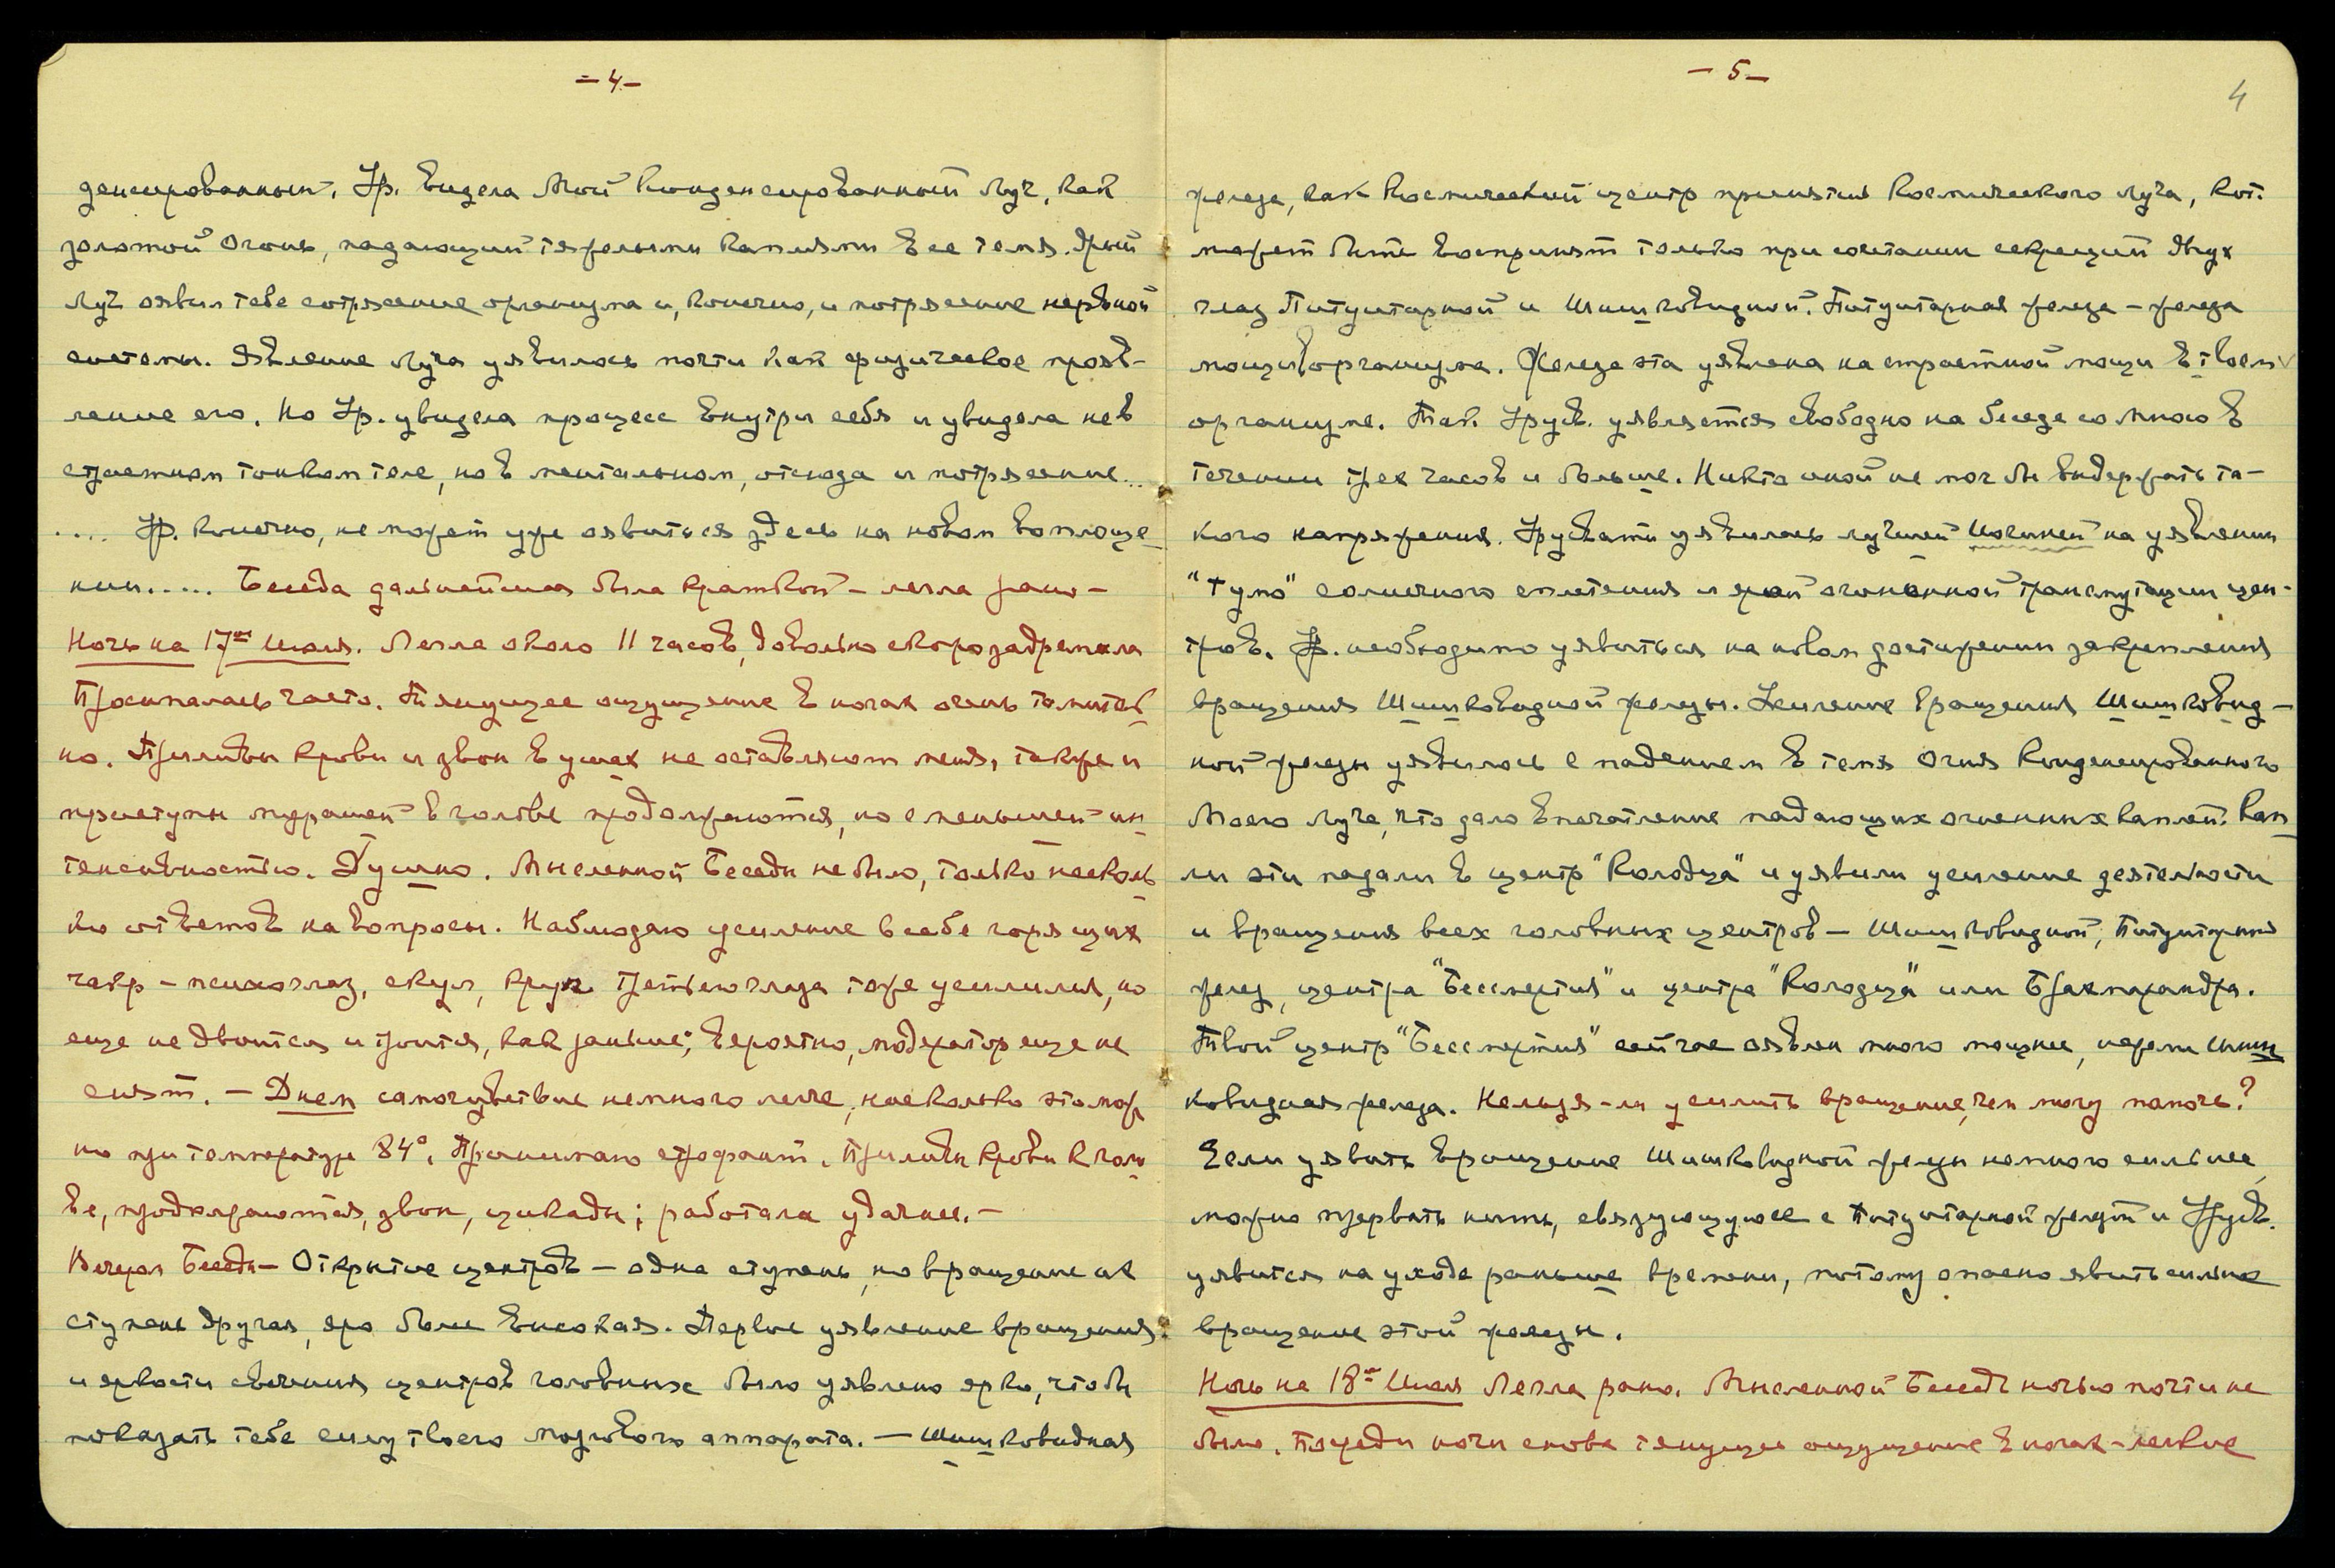 – 4 –
денсированным. Ур. видела Мой Конденсированный Луч, как
золотой Огонь, падающий тяжелыми каплями в ее темя. Ярый
Луч оявил тебе сотрясение организма и, конечно, и потрясение нервной
системы. Явление Луча уявилось почти как физическое прояв-
ление его. Но Ур. увидела процесс внутри себя и увидела не в
страстном тонком теле, но в ментальном, отсюда и потрясение...
.... Ур. конечно, не может уже оявиться здесь на новом воплоще-
нии..... Беседа дальнейшая была краткой – легла рано –
Ночь на 17ое Июля. Легла около 11 часов, довольно скоро задремала
Просыпалась часто. Тянущее ощущение в ногах очень томитель
но. Приливы крови и звон в ушах не оставляют меня, также и
приступы мурашей в голове продолжаются, но с меньшей ин
тенсивностью. Душно. Мысленной Беседы не было, только несколь
ко ответов на вопросы. Наблюдаю усиление в себе горящих
чакр – психоглаз, скул, круг третьего глаза тоже усилился, но
еще не двоится и троится, как раньше; вероятно, модератор еще не
снят. – Днем самочувствие немного легче, насколько это мож
но при температуре 84°. Принимаю строфант. Приливы крови к голо
ве, продолжаются, звон, цикады; работала удачнее. –
Вечером Беседы – Открытие центров – одна ступень, но вращение их
ступень другая, яро более высокая. Первое уявление вращения
и яркости свечения центров головных было уявлено ярко, чтобы
показать тебе силу твоего мозгового аппарата. – Шишковидная
– 5 –
4
железа, как Космический центр принятия Космического Луча, кот.
может быть воспринят только при сочетании секреций двух
глаз Питуитарной и Шишковидной. Питуитарная железа – железа
мощи организма. Железа эта уявлена на страстной мощи в твоем
организме. Так. Урусв. уявляется свободно на беседе со Мною в
течении трех часов и больше. Никто иной не мог бы выдержать та-
кого напряжения. Урусвати уявилась лучшей Йогиней на уявлении
"тумо" солнечного сплетения и ярой огненной трансмутации цен-
тров. Ур. необходимо уявиться на новом достижении закрепления
вращения Шишковидной железы. Усиление вращения Шишковид –
ной железы уявилось с падением в темя Огня Конденсированного
Моего Луча, что дало впечатление падающих огненных каплей. Кап
ли эти падали в центр "Колодца" и уявили усиление деятельности
и вращения всех головных центров – Шишковидной, Питуитарной
желез, центра "Бессмертия" и центра "Колодца" или Брахмрандра.
Твой центр "Бессмертия" сейчас оявлен много мощнее, нежели Шиш
ковидная железа. Нельзя-ли усилить вращение, чем могу помочь?
Если уявить вращение Шишковидной железы немного сильнее,
можно прервать нить, связующую ее с Питуитарной железой и Урусв.
уявится на уходе раньше времени, потому опасно явить сильное
вращение этой железы.
Ночь на 18ое Июля Легла рано. Мысленной Беседы ночью почти не
было. Посреди ночи снова тянущее ощущение в ногах – легкие